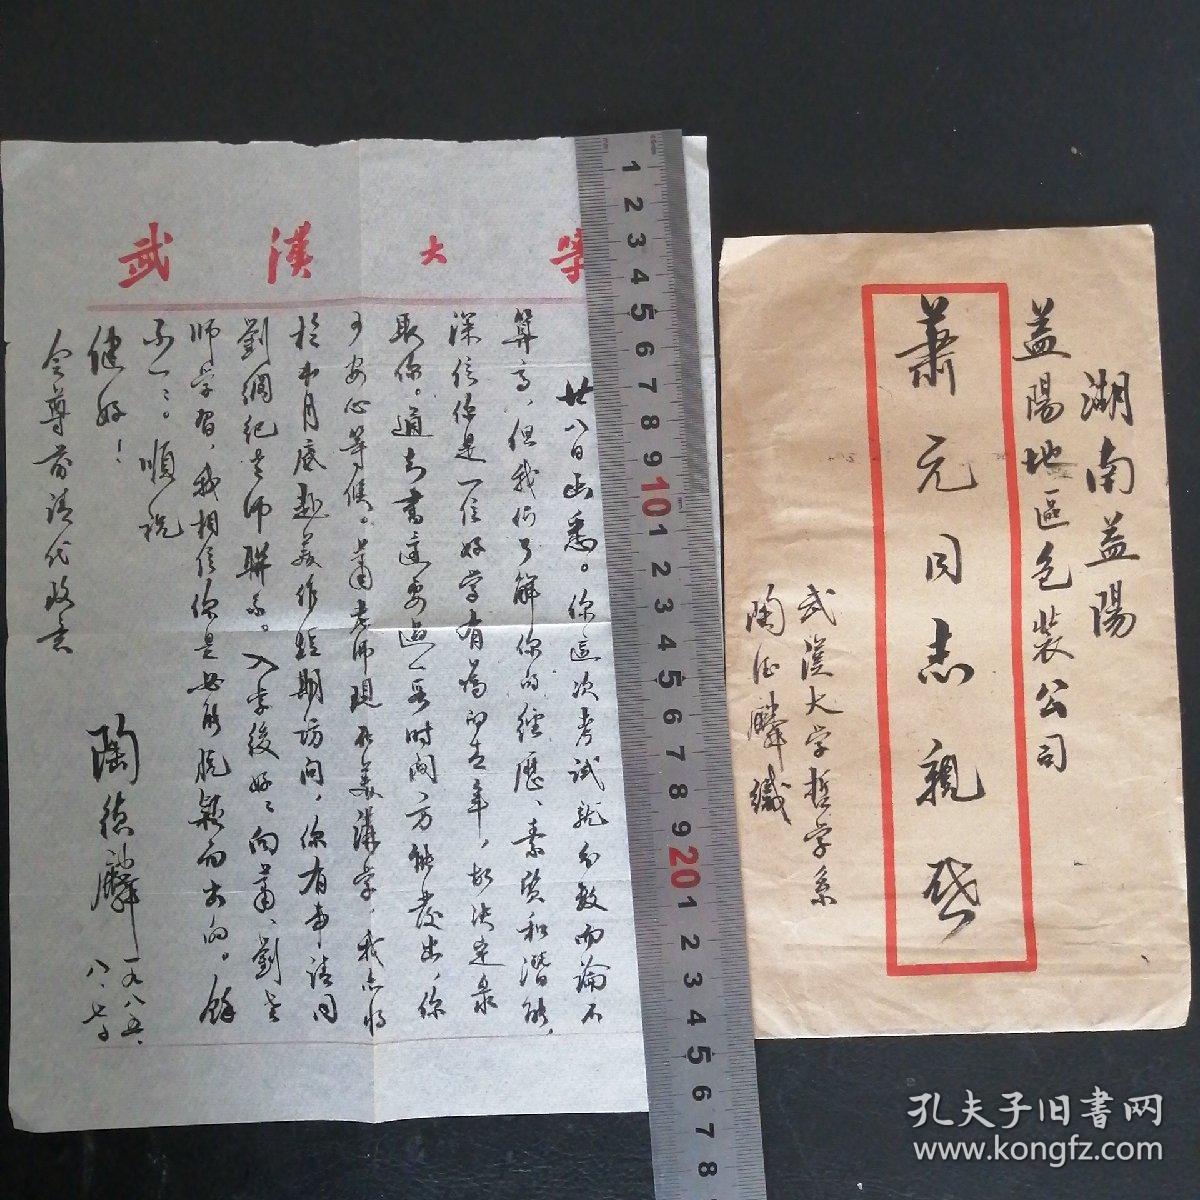 武漢大學
廿八日函悉。你這次考試就分數而論不
算高,但我們了解你的經歷、素質和潛能,
深信你是一位好学有為的青年,故决定录
取你。通知書還要過一段时间方能發出,你
可安心等候。萧老师現在美講学,我亦将
於本月底赴美作短期访问,你有事請同
劉綱紀老师联系。入学後好好向萧、劉老
师学習,我相信你是必能脱颖而出的。餘
不一一。順祝
健好!
令尊前請代致意
陶德麟 一九八五、
八、七
湖南益陽
益陽地區包装公司
萧元同志親啓
武漢大学哲学系
陶德麟緘
1 2 3 4 5 6 7 8 9 10 1 2 3 4 5 6 7 8 9 20 1 2 3 4 5 6 7 8
孔夫子旧書网
www.kongfz.com